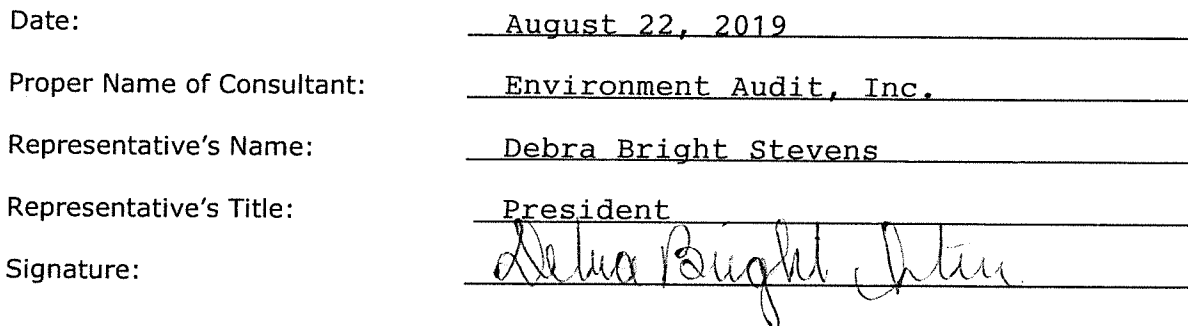 Date: August 22, 2019
Proper Name of Consultant: Environment Audit, Inc.
Representative's Name: Debra Bright Stevens
Representative's Title: President
Signature: Debra Bright Stevens